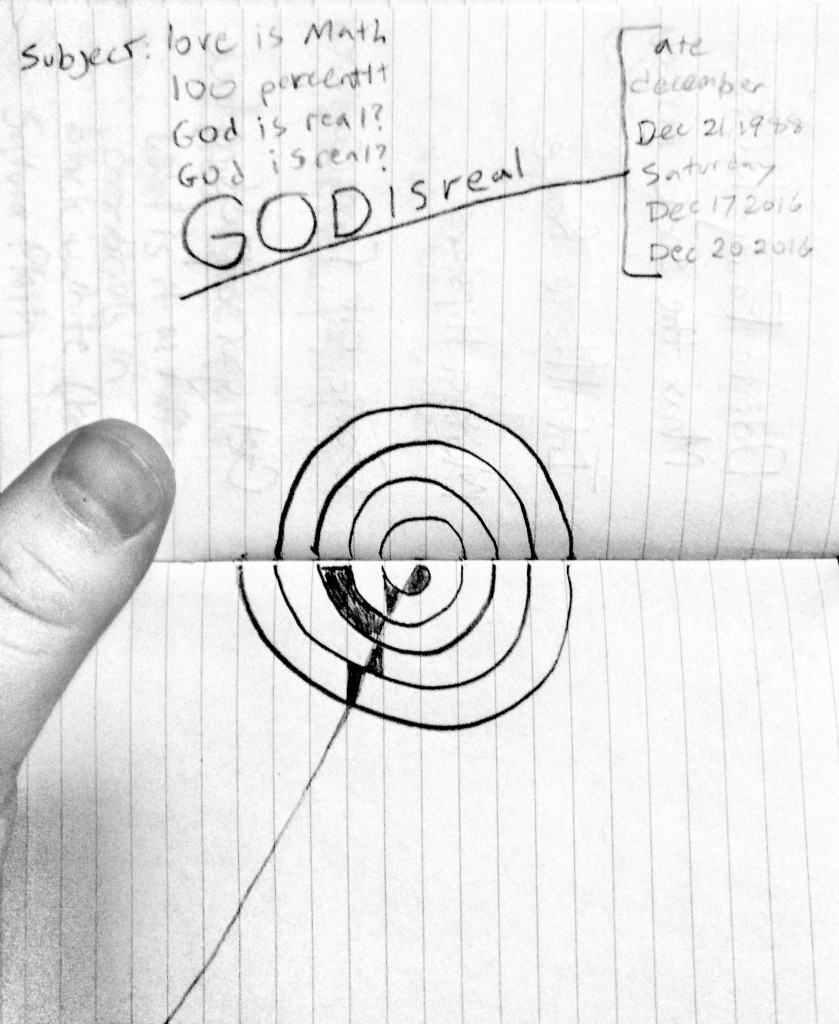 Subject: love is Math
100 percent
God is real?
God is real?
GOD is real
ate
december
Dec 21 1988
Saturday
Dec 17 2016
Dec 20 2016